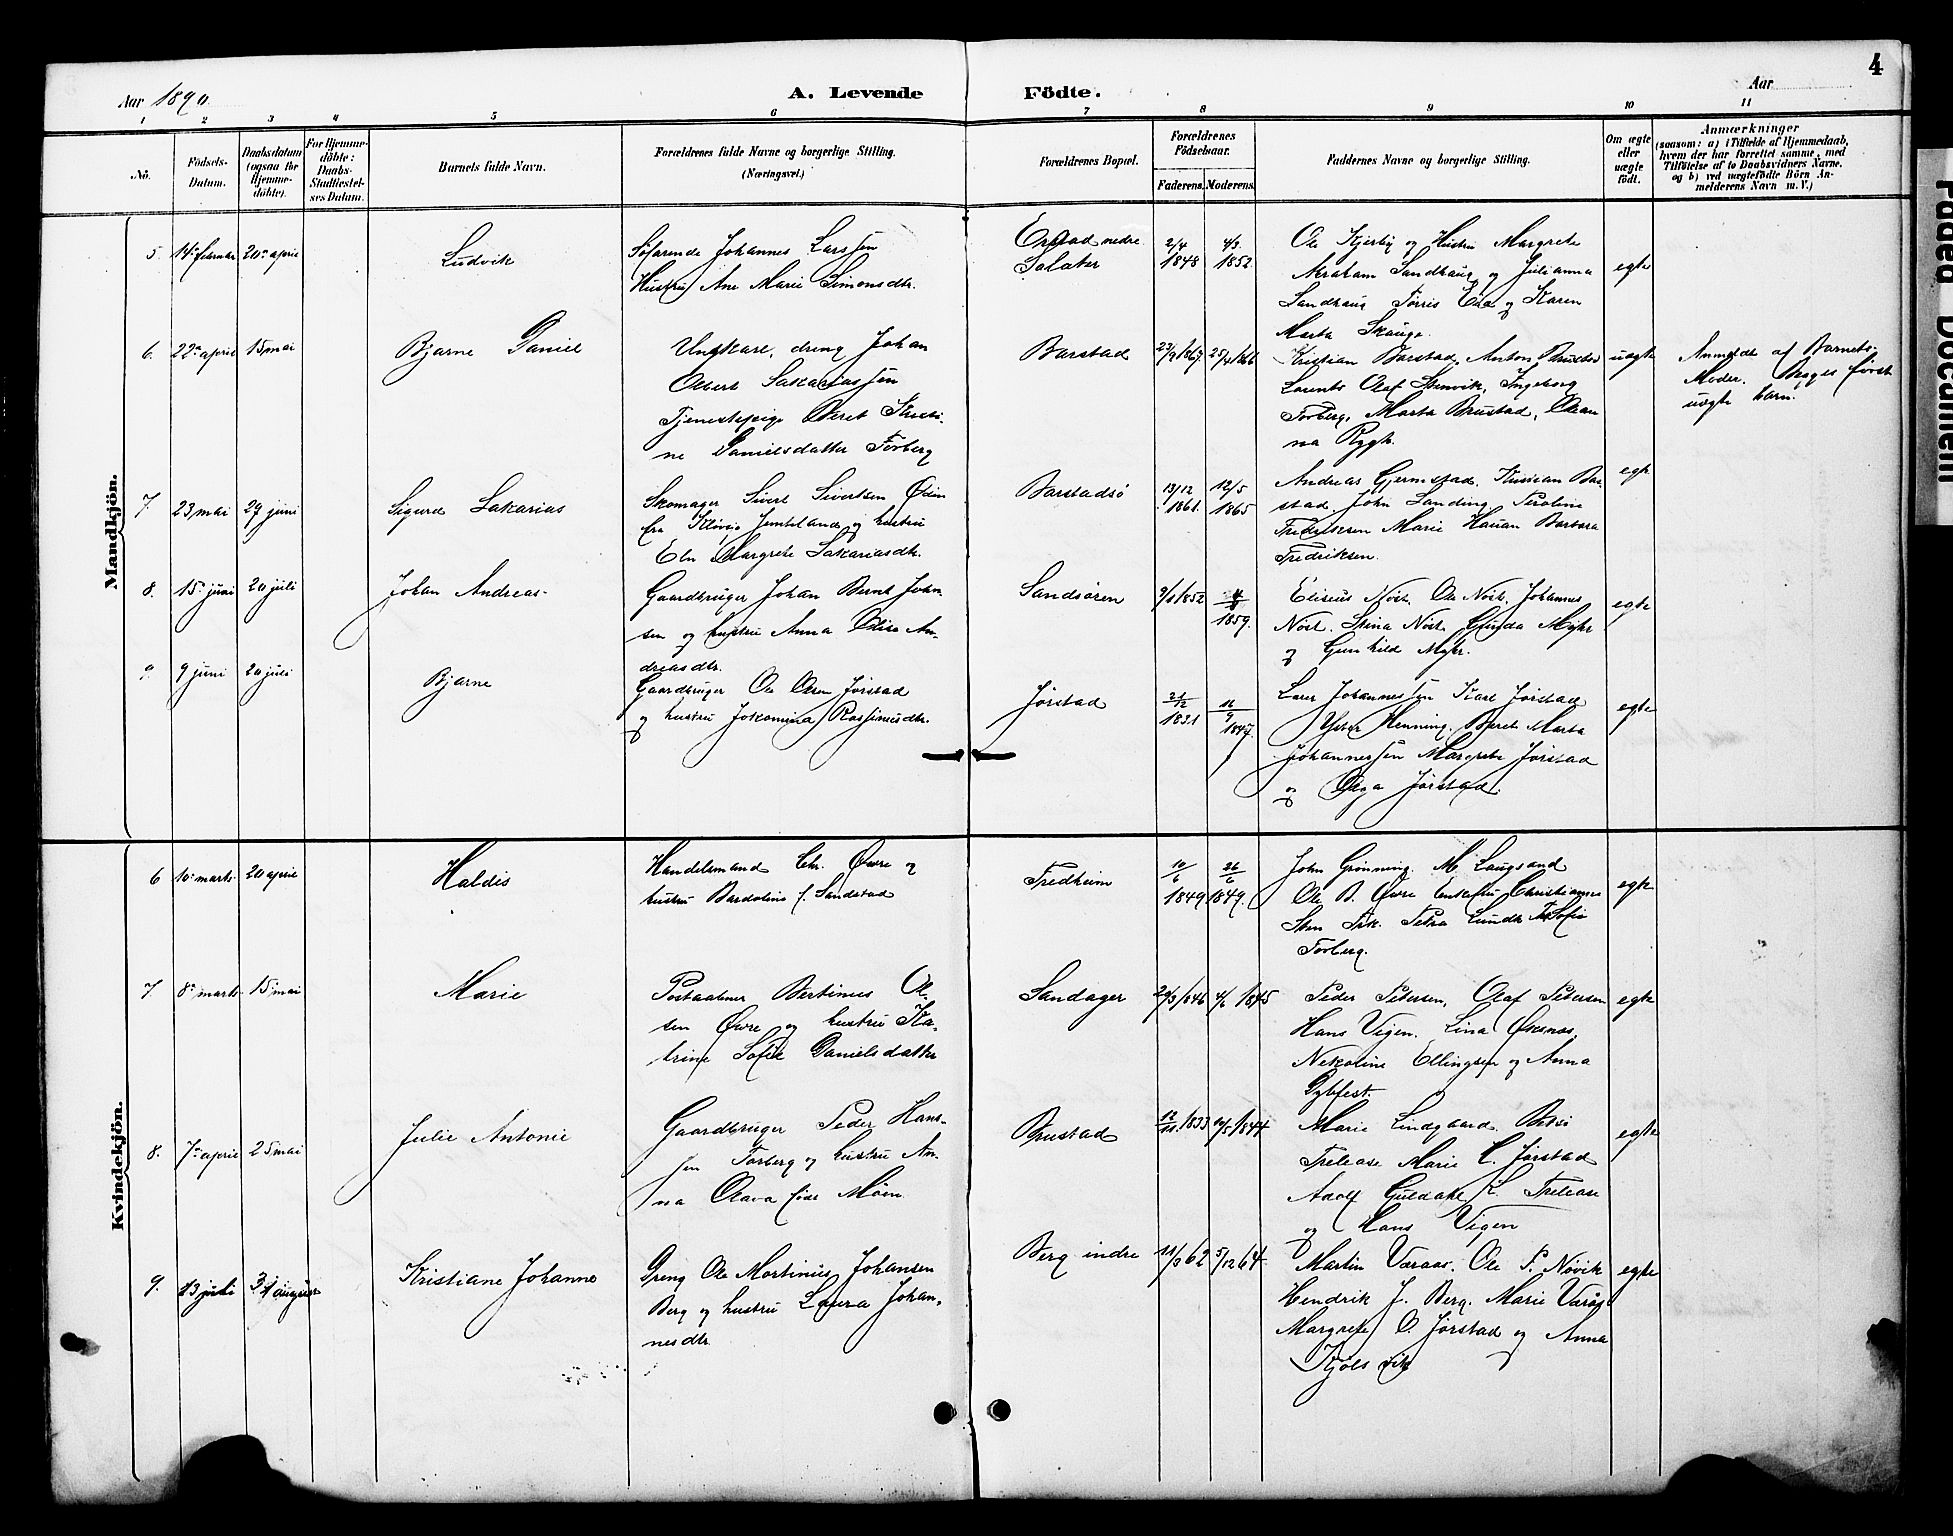 4
Aar 1890. A. Levende Födte. Aar
1 2 3 4 5 6 7 8 9 10 11
No. Födsels-Datum. Daabsdatum (ogsaa for Hjemmedöbte). For Hjemmedöbte: Daabs-Stadfæstelses Datum. Barnets fulde Navn. Forældrenes fulde Navne og borgerlige Stilling. (Næringsvei.) Forældrenes Bopæl. Forældrenes Födselsaar. Faderens. Moderens. Faddernes Navne og borgerlige Stilling. Om ægte eller uægte födt. Anmærkninger (saasom: a) i Tilfælde af Hjemmedaab, hvem der har forrettet samme, med Tilföielse af to Daabsvidners Navne. og b) ved uægtefödte Börn Anmelderens Navn m. V.)
Mandkjön.
5. 14. februar 20. april Ludvik Søfarende Johannes Larssen
Hustru Ane Marie Simonsdtr.
nedre
2/4 1848 4/3 1852
Ole og Hustru Margrete
Abraham Sandhaug og Julianna
Sandhaug Tørris og Karen
Marta Skauge.
egte
6. 22. april 15 mai Bjarne Daniel Ungkarl, dreng Johan
Olbert Sakariassen
Tjenestepige Beret Kristi-
ne Danielsdatter Forberg
Barstad
Kristian Barstad, Anton Brustad
Laurits Olaf Stenvik, Ingeborg
Forberg, Marta Brustad,
na Rygh.
uægte
Anmeldt af Barnets
Moder. Begges først
uægte barn.
7. 23 mai 29 juni Sigurd Sakarias Skomager Sivert Sivertsen
fra Jemtland og hustru
Margrete Sakariasdtr.
Barstadsø
13/12 1861. 12/5 1865
Andreas Gjermstad. Kristian Bar-
stad. John Landing, Peroline
Fredriksen Marie Hauan Barbara
Fredriksen.
egte
8. 15. juni 20 juli Johan Andreas Gaardbruger Johan Bernt Johan-
sen og hustru Anna Elisa An-
dreasdtr.
Sandsøren
1859.
Eliseus Nøst. Ole Nøst. Johannes
Nøst. Stina Nøst. Gurda Myhr
og Gunhilde Myhr.
egte
9. 9 juni 20 juli Bjarne Gaardbruger Ole Olsen Jørstad
og hustru Jokomina Rasjinusdtr.
Jørstad
21/12 1831 16/9 1847.
Lars Johannessen Karl Jørstad
Peter Henning. Beret Marta
Johannessen Margrete Jørstad
og Olga Jørstad.
egte
Kvindekjön.
6 10. marts 20 april Haldis Handelsmand Chr. Øvre og
hustru Bardoline f. Sandstad
Fredheim
10/6 1849 26/6 1849.
John Grønning. M. Laugsand
Ole B. Øvre Enkefru Christianne
Sten Frk. Petra Lundt Sofie
Forberg.
egte
7. 8. marts 15. mai Marie Postaabner Bertinus Ol-
sen Øvre og hustru Ka-
trine Sofie Danielsdatter
Sandager
29/3 1846 4/6 1845
Peder Petersen, Olaf Petersen
Hans Vigen. Lina Øksnes,
Nekoline Ellingsen og Anna
Dybfest.
egte
8. 7. april 25 mai Julie Antonie Gaardbruger Peder Hans-
sen Forberg og hustru An-
na Olava født Moen.
Brustad
12/11 1833 1844
Marie Lindgaard. Betsi
Trelease Marie C. Jørstad
Adolf Guldahl K. Trelease
og Hans Vigen
egte
9. 13 juli 31 august Kristiane Johanne Dreng Ole Martinus Johansen
Berg og hustru Laura Johan-
nesdtr.
Berg indre
11/3 62 5/12 64.
Martin Væraas. Ole P. Nøvik
Hendrik J. Berg. Marie Væraas
Margrete O. Jørstad og Anna
Kjølsvik
egte
Faded Document